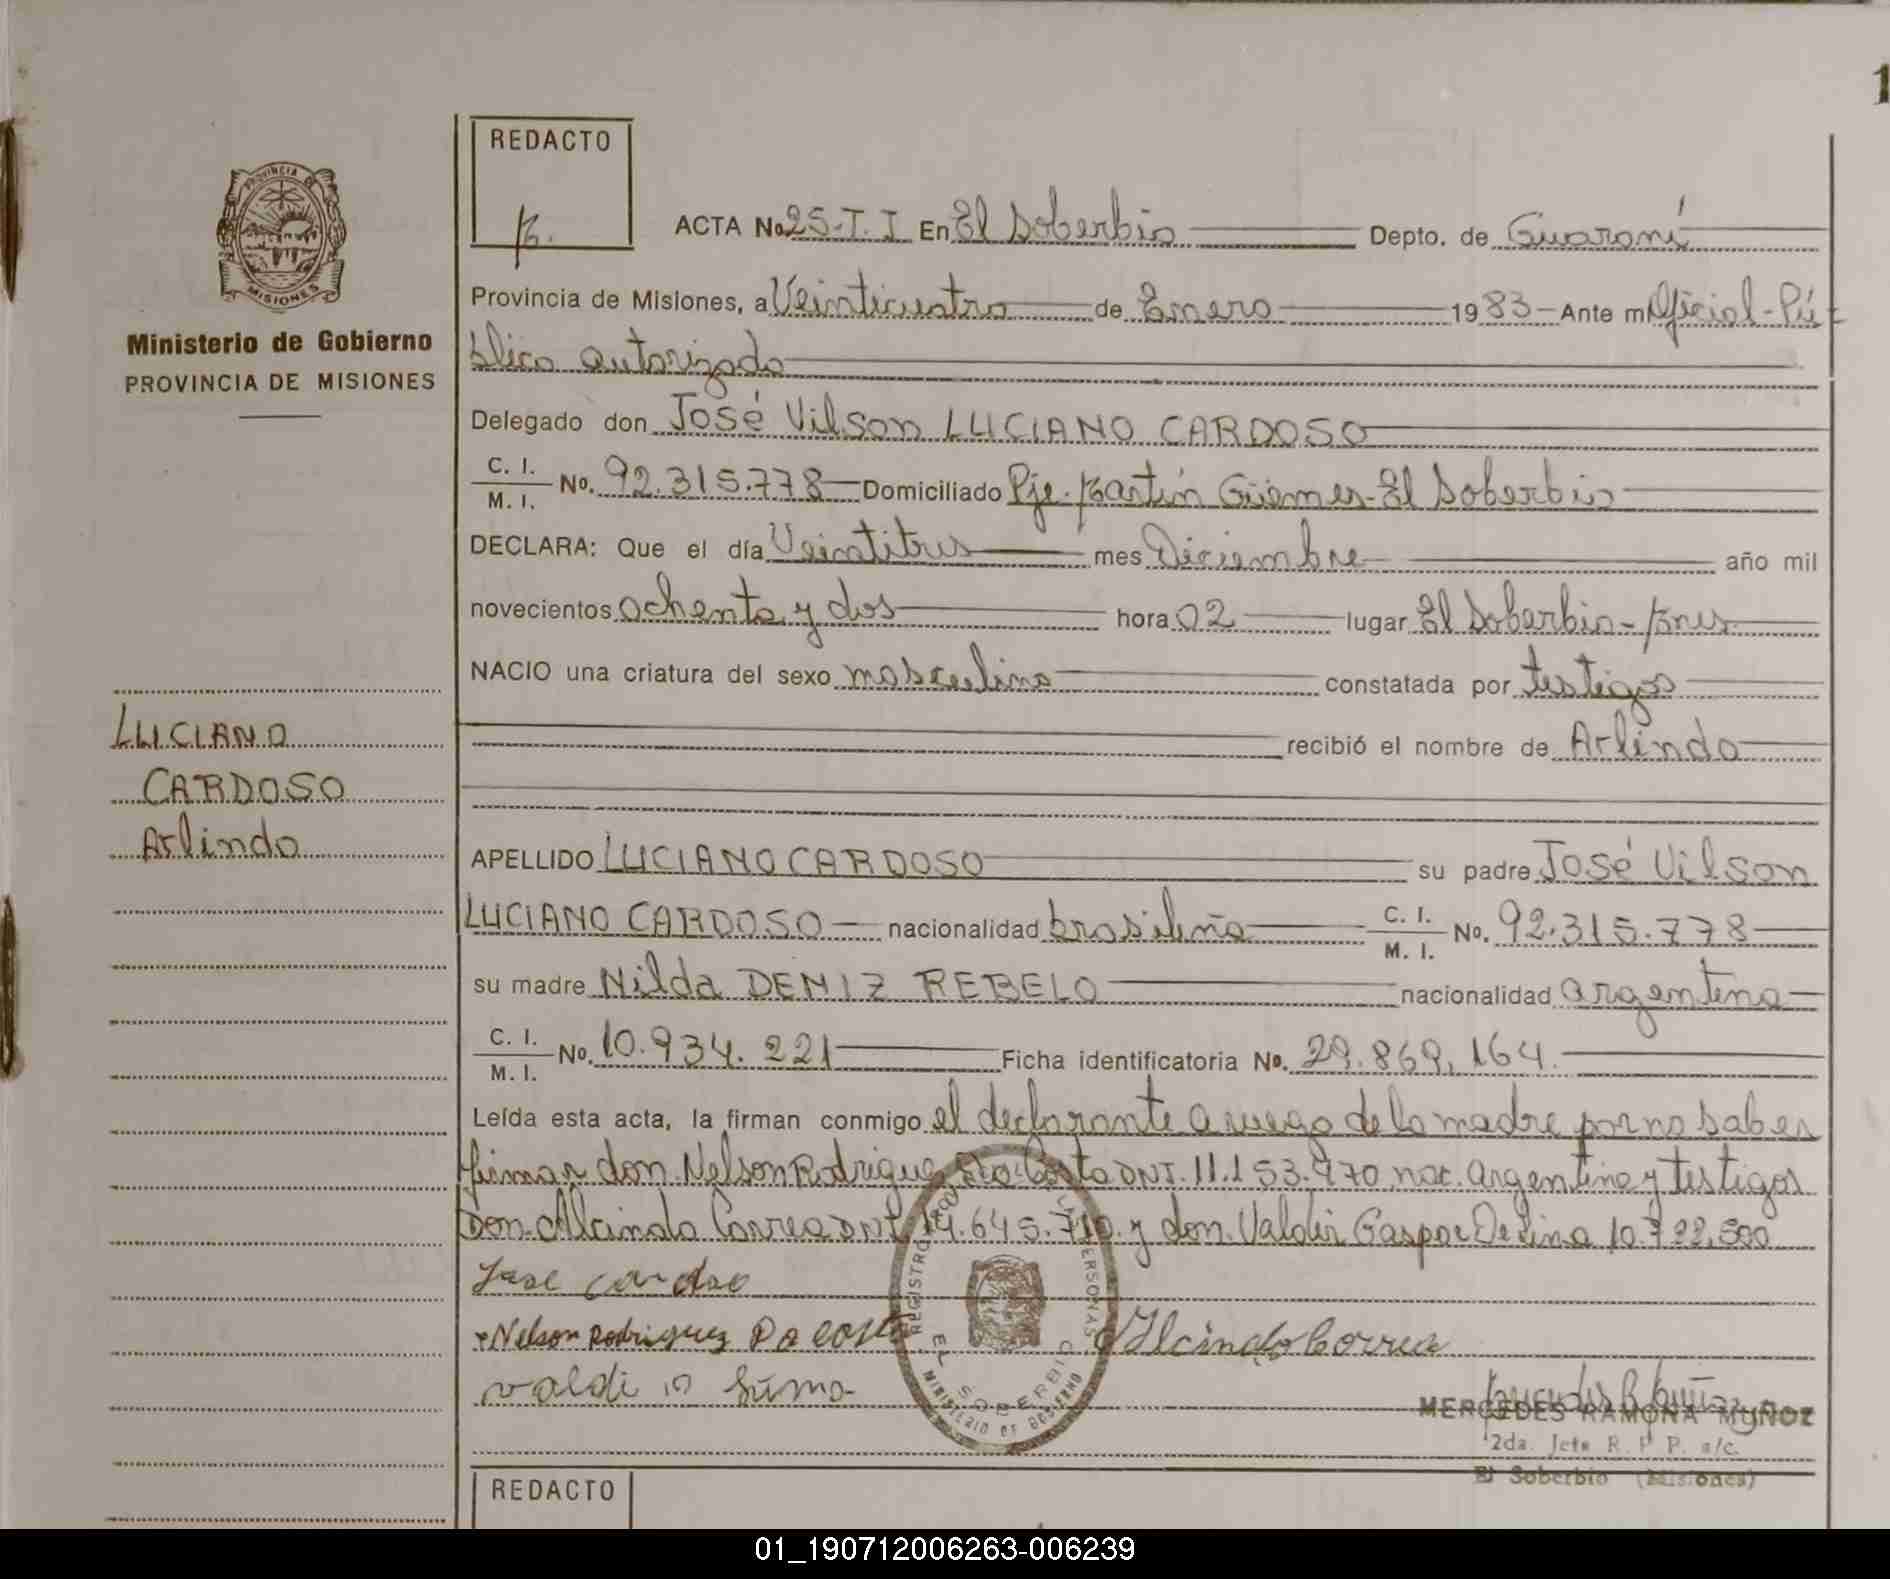 1
REDACTO
PROVINCIA DE
MISIONES
Ministerio de Gobierno
PROVINCIA DE MISIONES
ACTA No 25-T. I En El Soberbio Depto. de Guaraní
Provincia de Misiones, a Veinticuatro de Enero 1983 - Ante mi Oficial-Pú-
blico autorizado
Delegado don José Vilson LUCIANO CARDOSO
C. I. / M. I. No. 92.315.778 Domiciliado Pje. Martín Güemes-El Soberbio
DECLARA: Que el día Veintitres mes Diciembre año mil
novecientos ochenta y dos hora 02 lugar El Soberbio - Mnes
NACIO una criatura del sexo masculino constatada por testigos
recibió el nombre de Arlindo
LUCIANO
CARDOSO
Arlindo
APELLIDO LUCIANO CARDOSO su padre José Vilson
LUCIANO CARDOSO nacionalidad brasileña C. I. / M. I. No. 92.315.778
su madre Nilda DENIZ REBELO nacionalidad argentina
C. I. / M. I. No. 10.934.221 Ficha identificatoria No. 29.869,164.
Leída esta acta, la firman conmigo el declarante a ruego de la madre por no saber
firmar don Nelson Rodriguez Da Costa DNI. 11.153.970 nac. argentina y testigos
Don Alcindo Correa DNI 14.645.710 y don Valdir Gaspar De Lima 10.722,500
Jose cardoso
Nelson Rodriguez Da costa Alcindo Correa
REGISTRO PERSONAS
EL SOBERBIO
MINISTERIO DE GOBIERNO
MERCEDES RAMONA MUÑOZ
2da. Jefe R. P. P. a/c.
El Soberbio (Misiones)
REDACTO
01_190712006263-006239